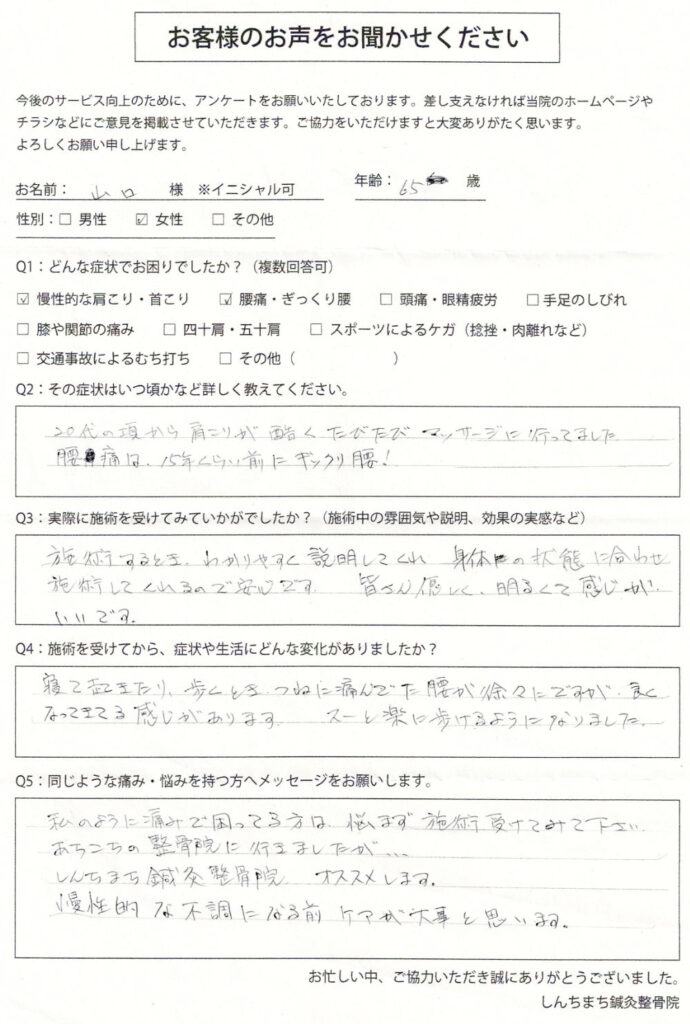 お客様のお声をお聞かせください
今後のサービス向上のために、アンケートをお願いいたしております。差し支えなければ当院のホームページや
チラシなどにご意見を掲載させていただきます。ご協力をいただけますと大変ありがたく思います。
よろしくお願い申し上げます。
お名前： 山口 様 ※イニシャル可 年齢： 65 歳
性別：☐ 男性 ☑ 女性 ☐ その他
Q1：どんな症状でお困りでしたか？（複数回答可）
☑ 慢性的な肩こり・首こり ☑ 腰痛・ぎっくり腰 ☐ 頭痛・眼精疲労 ☐ 手足のしびれ
☐ 膝や関節の痛み ☐ 四十肩・五十肩 ☐ スポーツによるケガ（捻挫・肉離れなど）
☐ 交通事故によるむち打ち ☐ その他（ ）
Q2：その症状はいつ頃かなど詳しく教えてください。
20代の頃から肩こりが酷くたびたびマッサージに行ってました
腰痛は、15年くらい前にギックリ腰！
Q3：実際に施術を受けてみていかがでしたか？（施術中の雰囲気や説明、効果の実感など）
施術するとき、わかりやすく説明してくれ 身体の状態に合わせ
施術してくれるので安心です。 皆さん優しく、明るくて感じが
いいです。
Q4：施術を受けてから、症状や生活にどんな変化がありましたか？
寝て起きたり、歩くとき、つねに痛んでた腰が徐々にですが、良く
なってきてる感じがあります。 スーと楽に歩けるようになりました。
Q5：同じような痛み・悩みを持つ方へメッセージをお願いします。
私のように痛みで困ってる方は、悩まず施術受けてみて下さい。
あちこちの整骨院に行きましたが...
しんちまち鍼灸整骨院 オススメします。
慢性的な不調になる前 ケアが大事と思います。
お忙しい中、ご協力いただき誠にありがとうございました。
しんちまち鍼灸整骨院